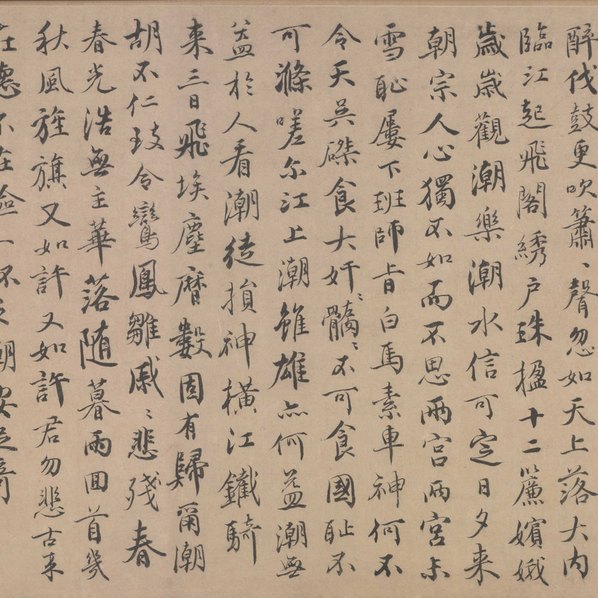 醉伐鼓更吹簫簫聲忽如天上落大內
臨江起飛閣綉戶珠楹十二簾嬪娥
歲歲觀潮樂潮水信可定日夕來
朝宗人心獨不如而不思兩宮兩宮未
雪恥屢下班師旨白馬素車神何不
令天吳磔食大奸髇髇不可食國恥不
可滌嗟尔江上潮雖雄亦何益潮無
益於人看潮徒損神橫江鐵騎
來三日飛埃塵曆數固有歸爾潮
胡不仁致令鸞鳳雛戚戚悲殘春
春光浩無主華落隨暮雨回首幾
秋風旌旗又如許又如許君勿悲古來
在德不在險一不足潮安足